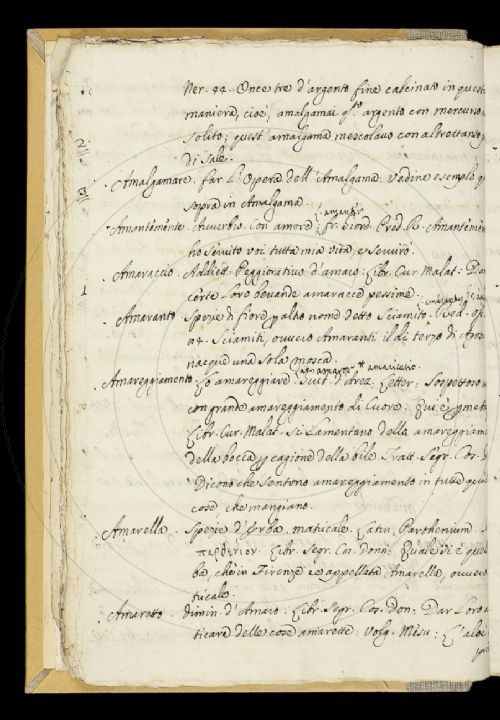 Ner. 44. Once tre d'argento fine calcinato in questa
maniera, cioè, amalgamai q.to argento con mercurio
solito; quest'amalgama mescolavo con altrettanto
di sale.
2.
3
Amalgamare. far L'Opera dell'Amalgama. Vedine esempio
sopra in Amalgama.
Amantemente. Avverbio. Con amore. fr. Giord. Pred. R. Amantemen
ho servito voi tutta mia vita, e servirò.
1
Amaraccio. Addiett. Peggiorativo d'amaro. Libr. Cur. Malat. Dan
certe loro bevande amaracce pessime.
Amaranto. Spezie di fiore p altro nome detto Sciamito. Red. Op.
Sciamiti, ovvero Amaranti il dì terzo di Agos
nacque una sola mosca.
Amareggiamento. Lo amareggiare. Letter. Sospettoso
con grande amareggiamento di Cuore. Qui è p met.
Libr. Cur. Malat. Si lamentano della amareggiam
della bocca p cagione della bile. Tratt. Segr. Cos.
Dicono che sentono amareggiamento in tutte quel
cose che mangiano.
Amarella. Spezie d'Erba, matricale. Latin. Parthenium.
παρθένιον. Libr. Segr. Cos. donn. Quale si è quel
ba, che in Firenze è appellata Amarella, ovvero
tricale.
Amaretto. dimin. d'Amaro. Libr. Segr. Cos. Don. Dar loro a
ticare delle cose amarette. Volg. Mesu. L'aloè